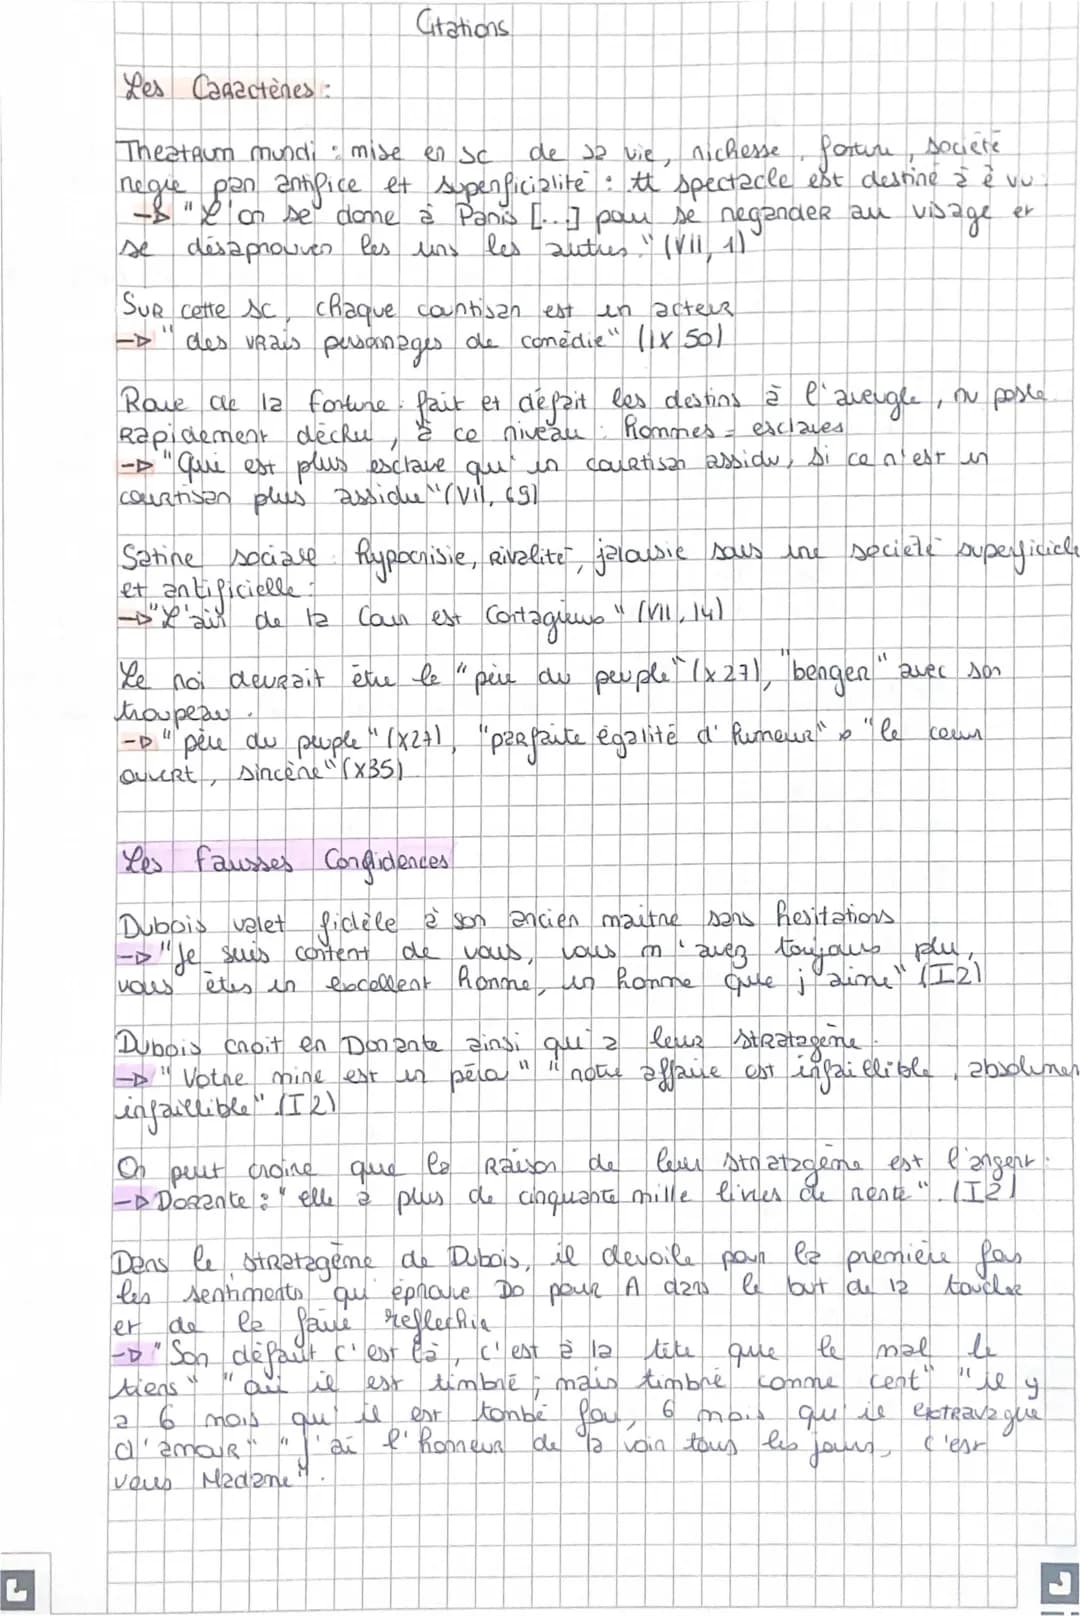 Citations
Les Caractères :
Theatrum mundi : mise en sc de sa vie, richesse, fortune, société
regie par artifice et superficialité : tt spectacle est destiné à ê vu
-> "L'on se donne à Paris [...] pour se regarder au visage et
se désaprouver les uns les autres." (VII, 1)
Sur cette sc, chaque courtisan est un acteur
-> "des vrais personnages de comédie" (IX 50)
Roue de la fortune : fait et défait les destins à l'aveugle, nv poste
Rapidement déchu, à ce niveau : hommes = esclaves
-> "Qui est plus esclave qu'un courtisan assidu, si ce n'est un
courtisan plus assidu" (VII, 69)
Satire sociale : hypocrisie, Rivalité, jalousie sous une société superficielle
et artificielle :
-> "L'air de la Cour est Contagieux" (VII, 14)
Le roi devrait être le "père du peuple" (X 27), "berger" avec son
troupeau.
-> "père du peuple" (X27), "parfaite égalité d'humeur" "le cœur
ouvert, sincère" (X35)
Les Fausses Confidences
Dubois valet fidèle à son ancien maître sans hesitations
-> "Je suis content de vous, vous m'avez toujours plu,
vous êtes un excellent homme, un homme que j'aime" (I2)
Dubois croit en Dorante ainsi qu'a leur stratagème.
-> "Votre mine est un péro" "notre affaire est infaillible, absolumen
infaillible" (I2)
On peut croire que la Raison de leur stratagème est l'argent.
-> Dorante : "elle a plus de cinquante mille livres de rente". (I2)
Dans le stratagème de Dubois, il devoile pour la première fois
les sentiments qu'éprouve Do pour A dans le but de la toucher
et de la faire reflechir
-> "Son défaut c'est là, c'est à la tête que le mal le
tiens" "oui il est timbré ; mais timbré comme cent" "il y
a 6 mois qu'il est tombé fou, 6 mois qu'il extravague
d'amour" "j'ai l'honneur de la voir tous les jours, c'est
vous Madame".